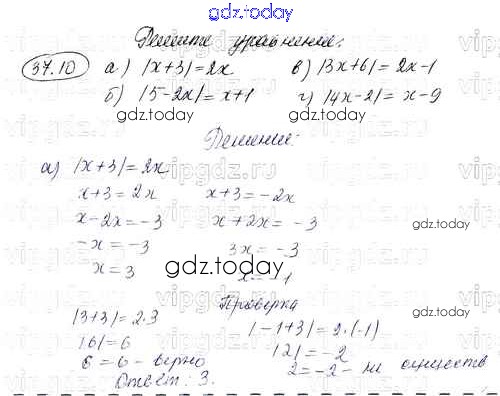 gdz.today
Решите уравнения:
37.10 а) |x+3|=2x в) |3x+6|=2x-1
б) |5-2x|=x+1 г) |4x-2|=x-9
gdz.today gdz.today
Решение:
а) |x+3|=2x
gdz.today
x+3=2x x+3=-2x
x-2x=-3 x+2x=-3
-x=-3 3x=-3
x=3 x=-1
gdz.today
Проверка
|3+3|=2·3 |-1+3|=2·(-1)
|6|=6 |2|=-2
6=6-верно 2=-2- не
Ответ: 3.
gdz.today gdz.today